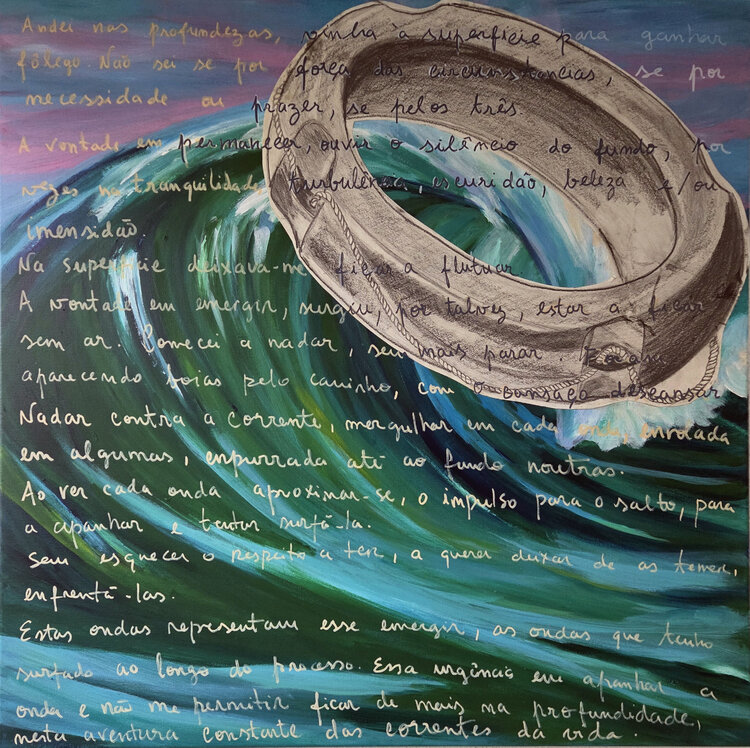 Andei nas profundezas, vinha à superfície para ganhar
fôlego. Não sei se por força das circunstâncias, se por
necessidade ou prazer, se pelos três.
A vontade em permanecer, ouvir o silêncio do fundo, por
vezes na tranquilidade, turbulência, escuridão, beleza e/ou
imensidão.
Na superfície deixava-me ficar a flutuar.
A vontade em emergir, surgiu, por talvez, estar a ficar
sem ar. Comecei a nadar, sem mais parar.
aparecendo boias pelo caminho, com o cansaço descansar
Nadar contra a corrente, mergulhar em cada onda, enrolada
em algumas, empurrada até ao fundo noutras.
Ao ver cada onda aproximar-se, o impulso para o salto, para
a apanhar e tentar surfá-la.
Sem esquecer o respeito a ter, a querer deixar de as temer,
enfrentá-las.
Estas ondas representam esse emergir, as ondas que tenho
surfado ao longo do processo. Essa urgência em apanhar a
onda e não me permitir ficar de mais na profundidade,
nesta aventura constante das correntes da vida.